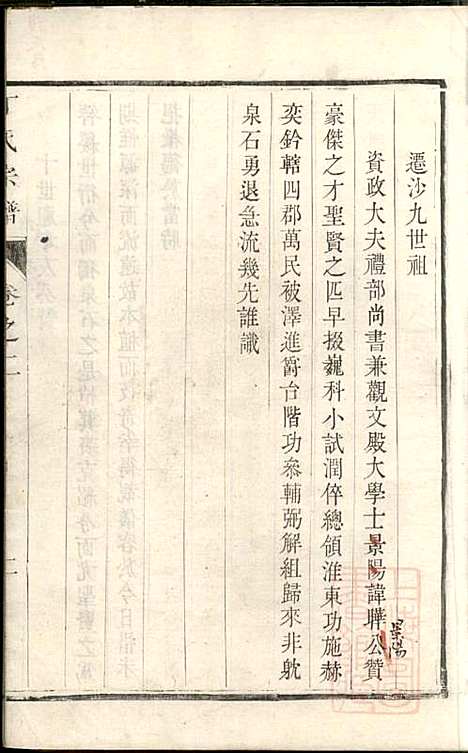 遷沙九世祖
資政大夫禮部尚書兼觀文殿大學士景陽諱曄公贊
豪傑之才聖賢之匹早掇巍科小試潤倅總領淮東功施赫
奕鈐轄四郡萬民被澤進爵台階功叅輔弼解組歸來非躭
泉石勇退急流幾先誰識
景陽
氏宗譜
卷之二